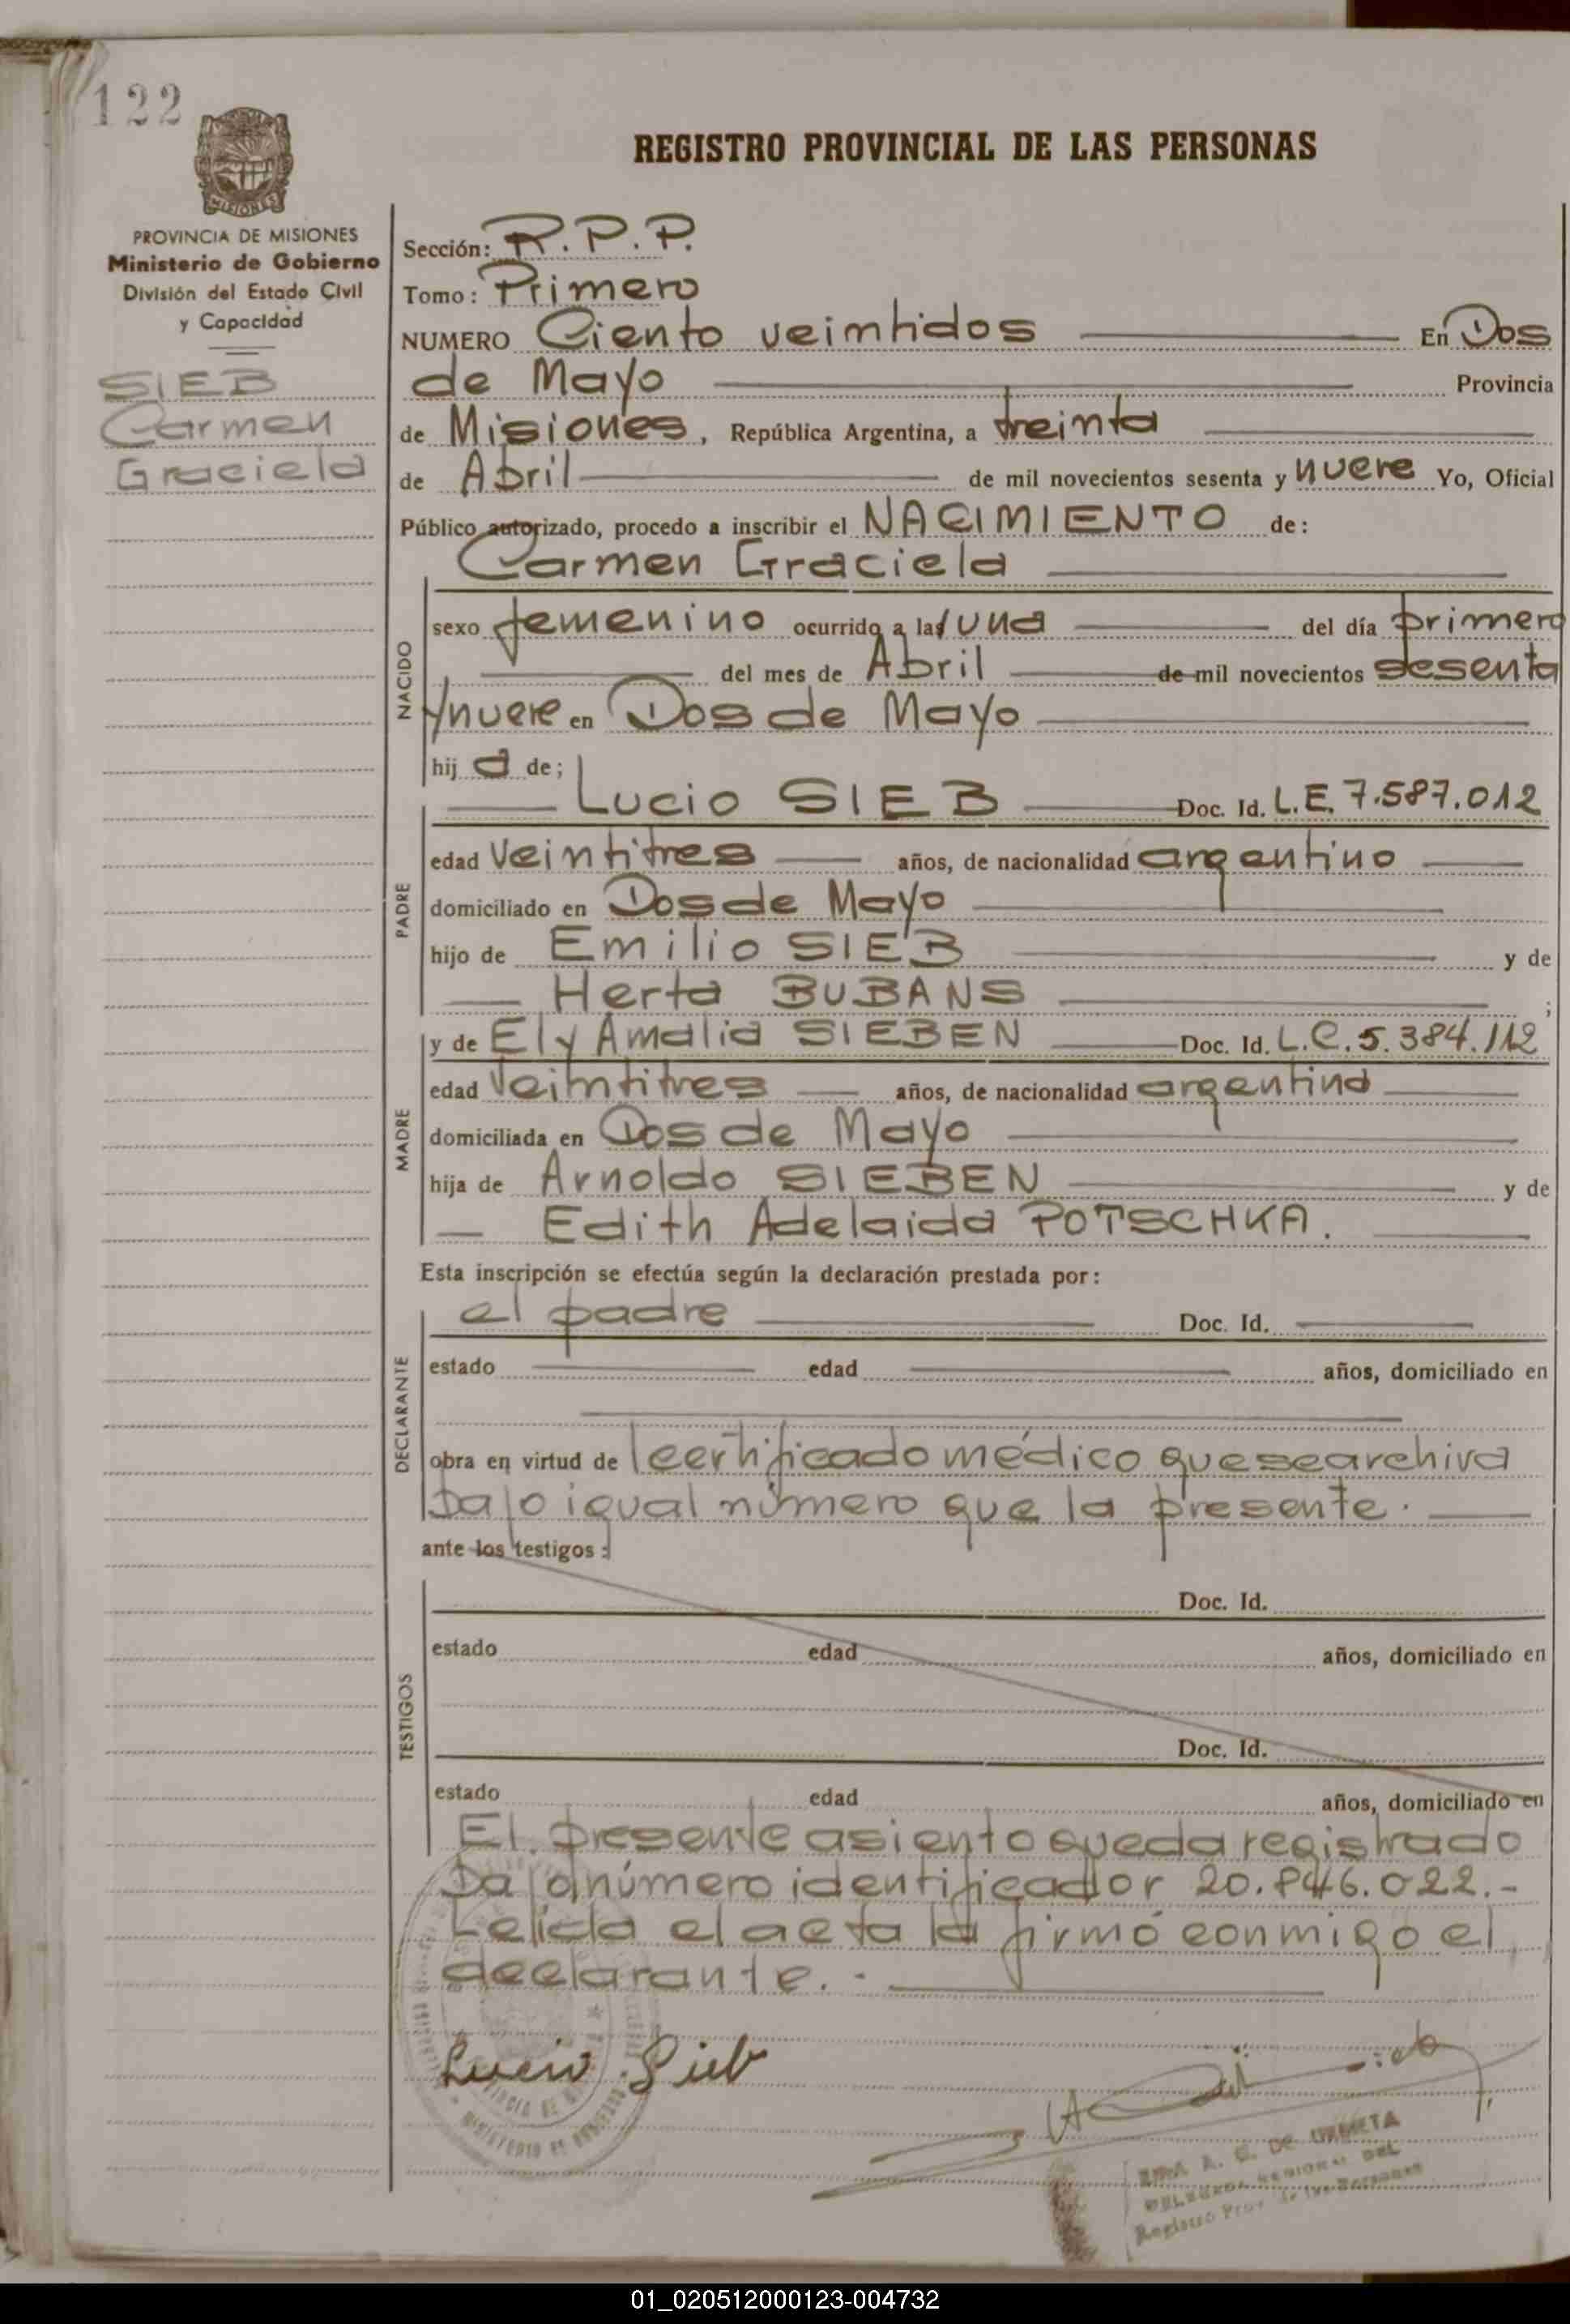 122
REGISTRO PROVINCIAL DE LAS PERSONAS
MISIONES
PROVINCIA DE MISIONES
Ministerio de Gobierno
División del Estado Civil
y Capacidad
SIEB
Carmen
Graciela
Sección: R.P.P.
Tomo: Primero
NUMERO Ciento veintidos En Dos
de Mayo Provincia
de Misiones, República Argentina, a treinta
de Abril de mil novecientos sesenta y nueve Yo, Oficial
Público autorizado, procedo a inscribir el NACIMIENTO de:
Carmen Graciela
NACIDO
sexo femenino ocurrido a la/ una del día primero
del mes de Abril de mil novecientos sesenta
y nueve en Dos de Mayo
hij a de;
PADRE
Lucio SIEB Doc. Id. L.E. 7.587.012
edad veintitres años, de nacionalidad argentino
domiciliado en Dos de Mayo
hijo de Emilio SIEB y de
Herta BUBANS ;
MADRE
y de Ely Amalia SIEBEN Doc. Id. L.C. 5.384.112
edad veintitres años, de nacionalidad argentina
domiciliada en Dos de Mayo
hija de Arnoldo SIEBEN y de
Edith Adelaida POTSCHKA.
Esta inscripción se efectúa según la declaración prestada por:
DECLARANTE
el padre Doc. Id.
estado edad años, domiciliado en
obra en virtud de certificado médico que se archiva
bajo igual número que la presente.
ante los testigos:
TESTIGOS
Doc. Id.
estado edad años, domiciliado en
Doc. Id.
estado edad años, domiciliado en
El presente asiento queda registrado
bajo número identificador 20.846.022.-
Leída el acta la firmó conmigo el
declarante.-
Lucio Sieb
A. C. DE URRETA
DELEGADA REGIONAL DEL
Registro Prov. de las Personas
01_020512000123-004732